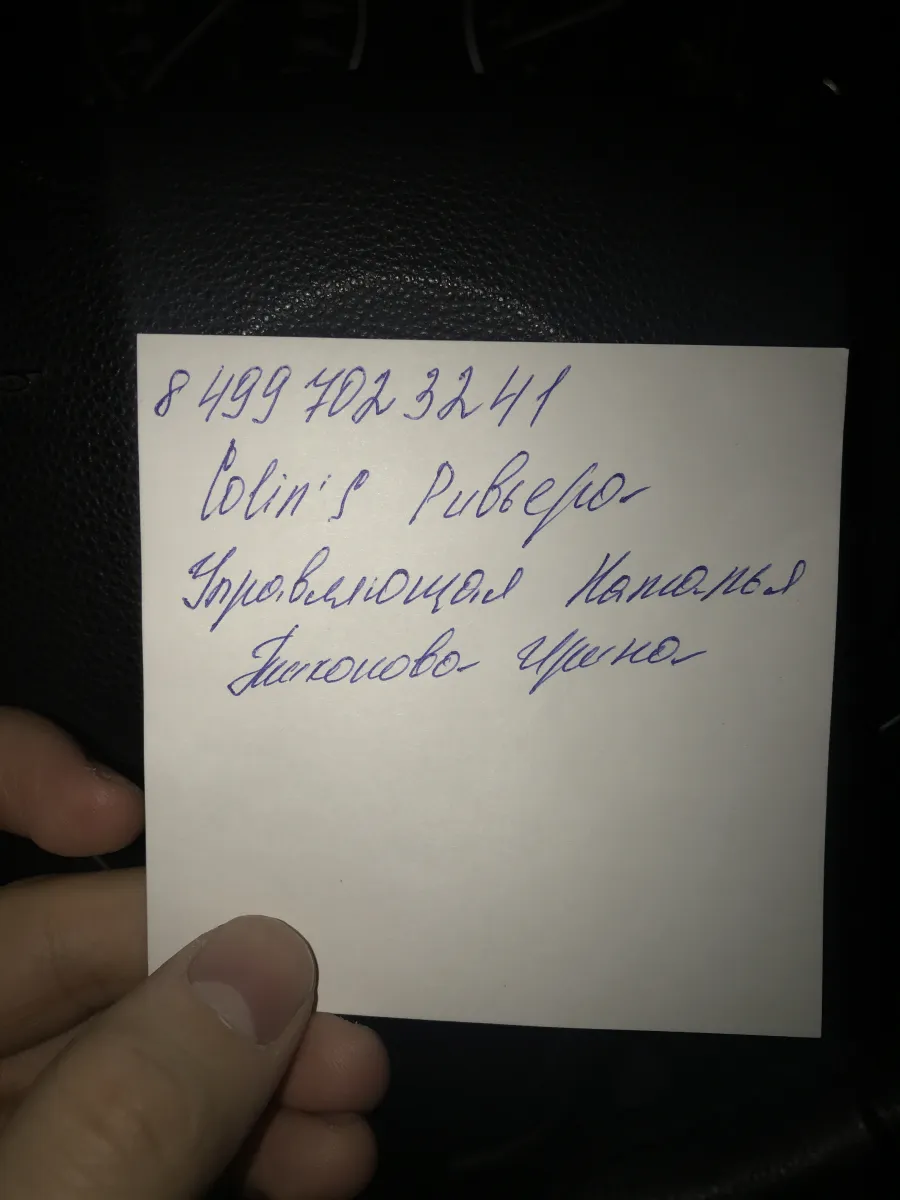 8 499 702 32 41
Colin's Ривьера
Управляющая Наталья
Тихонова Ирина